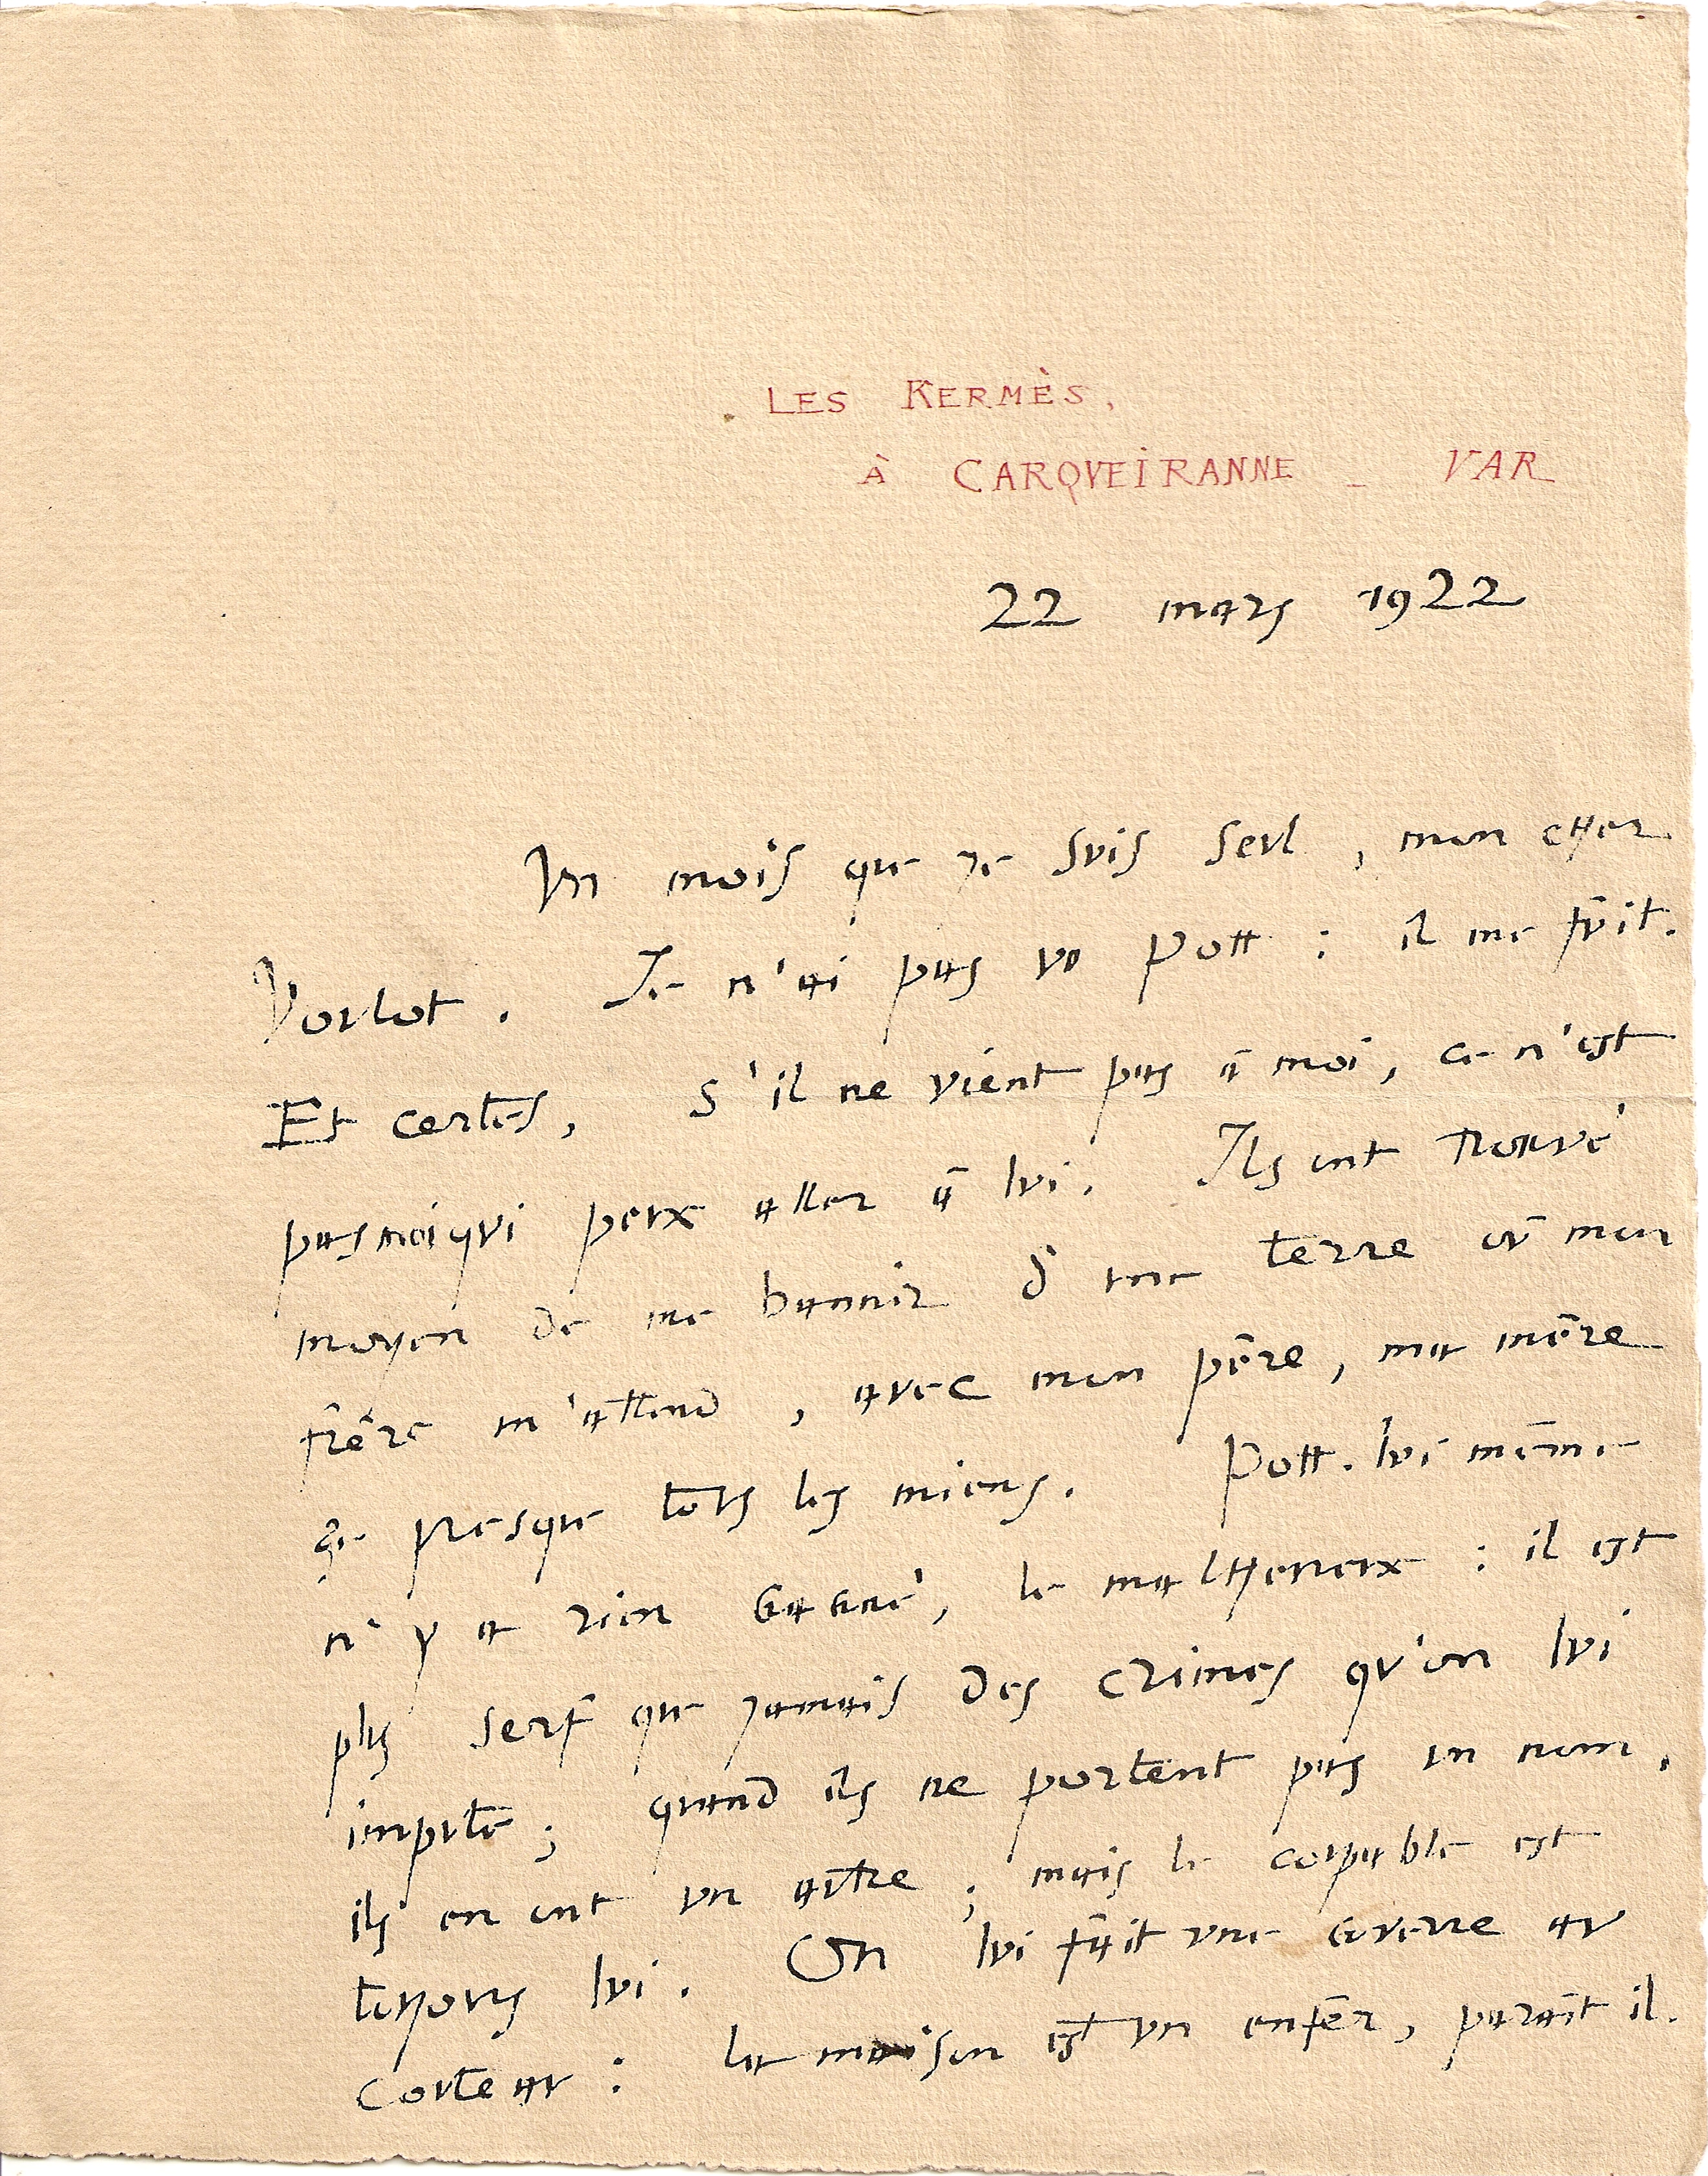 LES KERMÈS,
À CARQVEIRANNE _ VAR
22 mars 1922
Un mois que je suis seul, mon cher
Voulot. Je n'ai pas vu Pott : il me fuit.
Et certes, s'il ne vient pas à moi, ce n'est
pas moi qui peux aller à lui. Ils ont trouvé
moyen de me bannir d'une terre où mon
frère m'attend, avec mon père, ma mère
& presque tous les miens. Pott. lui même
n'y a rien gagné, le malheureux : il est
plus serf que jamais des crimes qu'on lui
impute ; quand ils ne portent pas un nom,
ils en ont un autre ; mais le coupable est
toujours lui. On lui fait une guerre au
couteau : la maison est un enfer, paraît il.